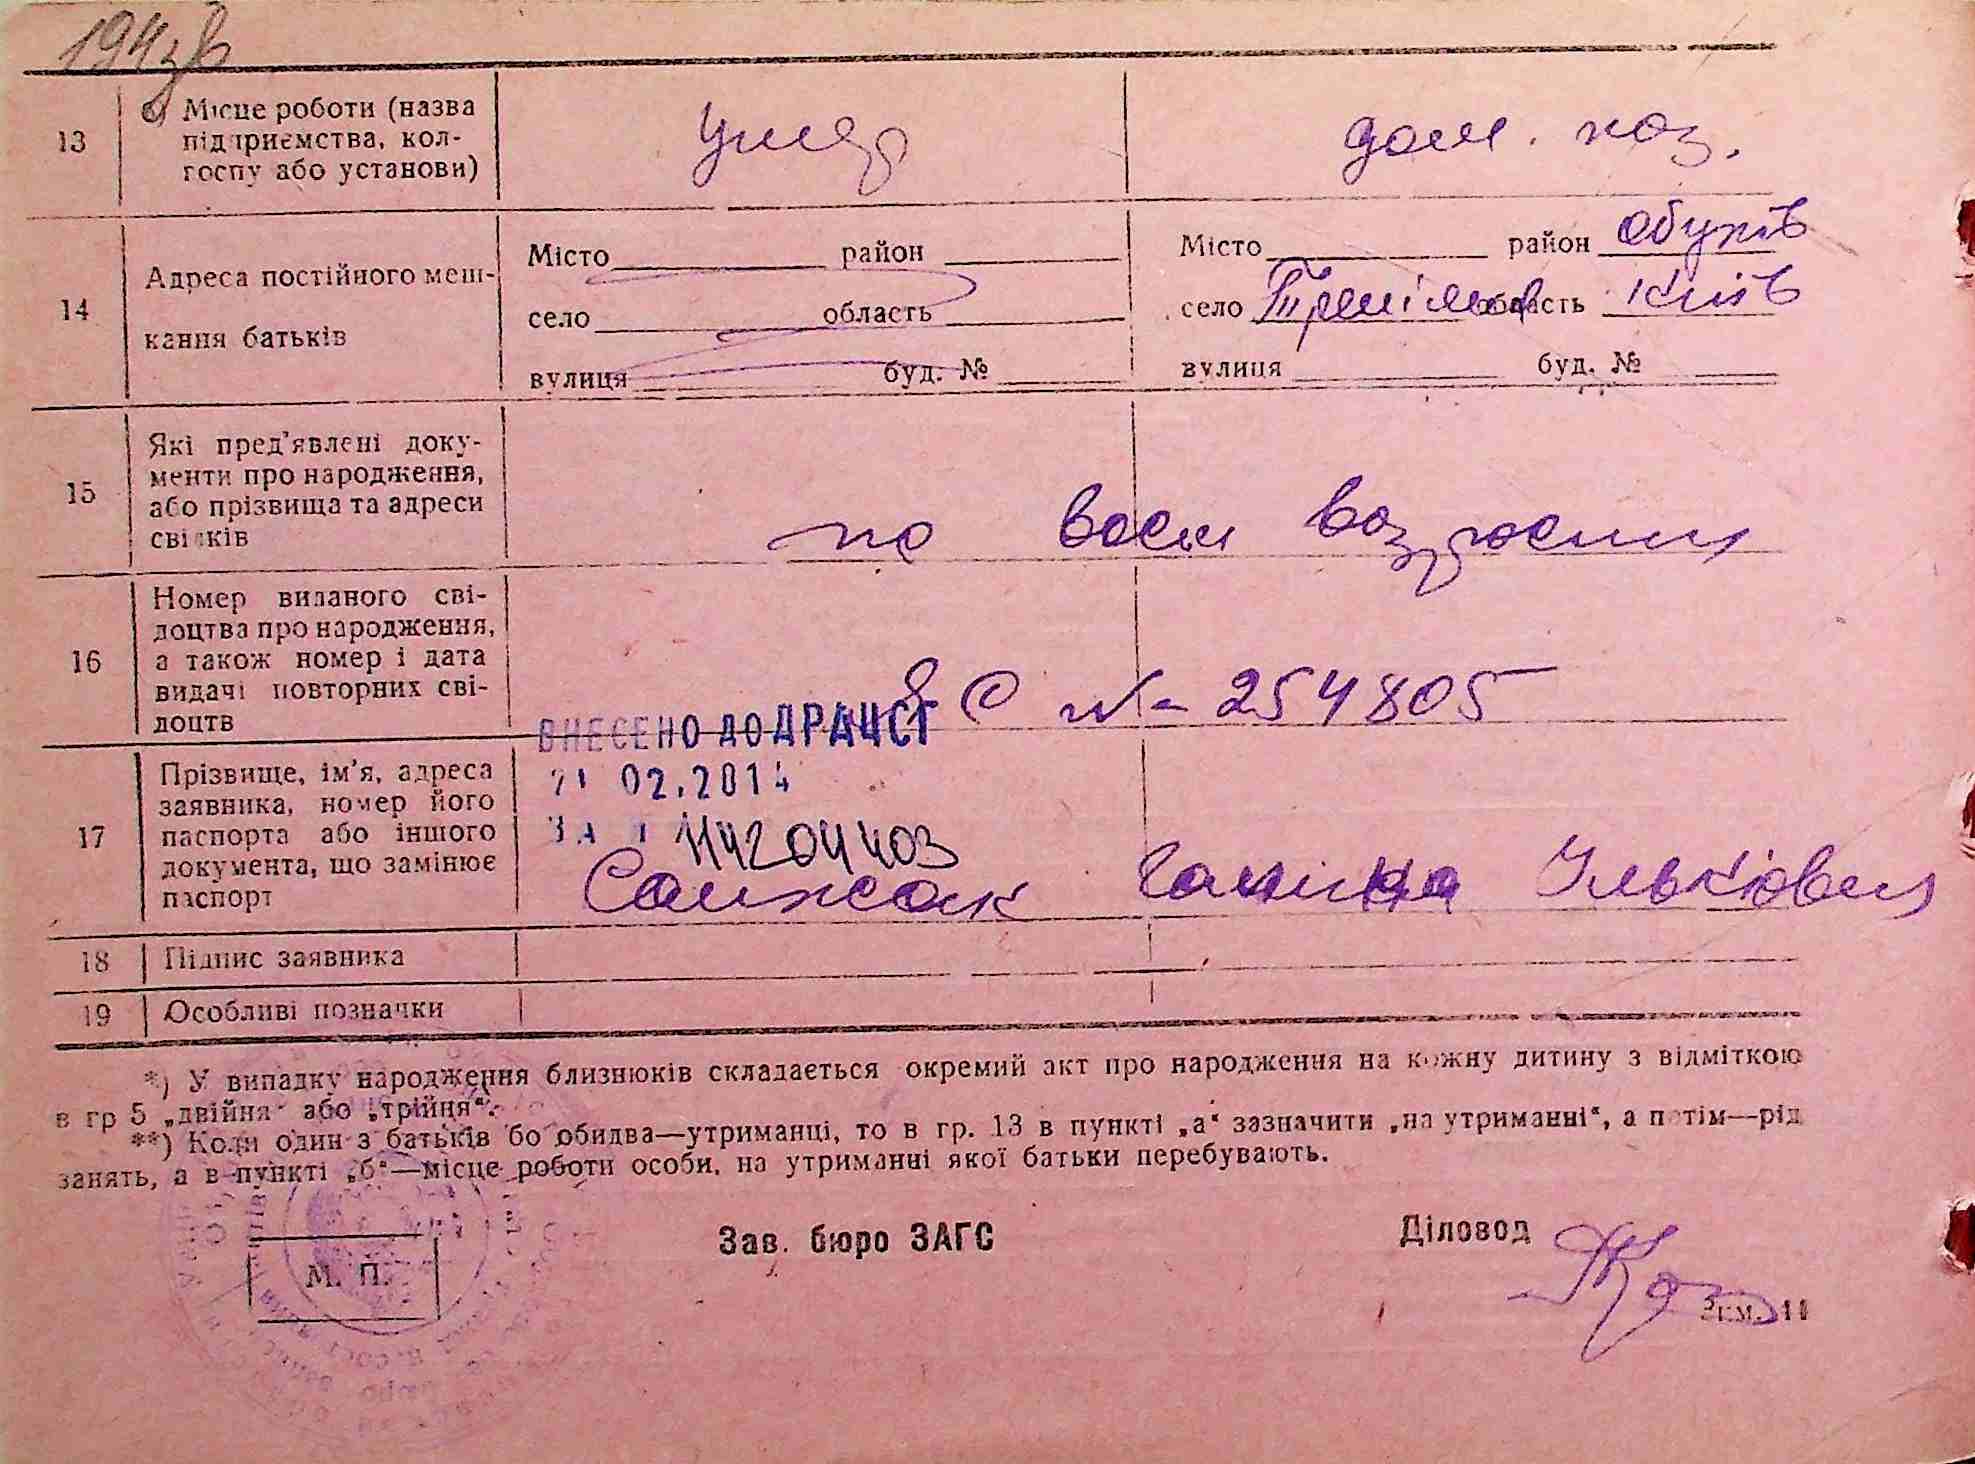 194зв
13
б) Місце роботи (назва
підприємства, кол-
госпу або установи)
умер
дом. хоз.
14
Адреса постійного меш-
кання батьків
Місто район
село область
вулиця буд. №
Місто район Обухів
село Трипілля область Київ
вулиця буд. №
15
Які пред'явлені доку-
менти про народження,
або прізвища та адреси
свідків
по восм возрасних
16
Номер виданого сві-
доцтва про народження,
а також номер і дата
видачі повторних сві-
доцтв
С № 254805
ВНЕСЕНО ДО ДРАЦСГ
21 02.2014
ЗА 11424403
17
Прізвище, ім'я, адреса
заявника, номер його
паспорта або іншого
документа, що замінює
паспорт
Галина Ільківна
18 Підпис заявника
19 Особливі позначки
*) У випадку народження близнюків складається окремий акт про народження на кожну дитину з відміткою
в гр 5 „двійня“ або „трійня“.
**) Коли один з батьків бо обидва—утриманці, то в гр. 13 в пункті „а“ зазначити „на утриманні“, а потім—рід
занять, а в пункті „б“—місце роботи особи, на утриманні якої батьки перебувають.
Зав. бюро ЗАГС
Діловод
М. П.